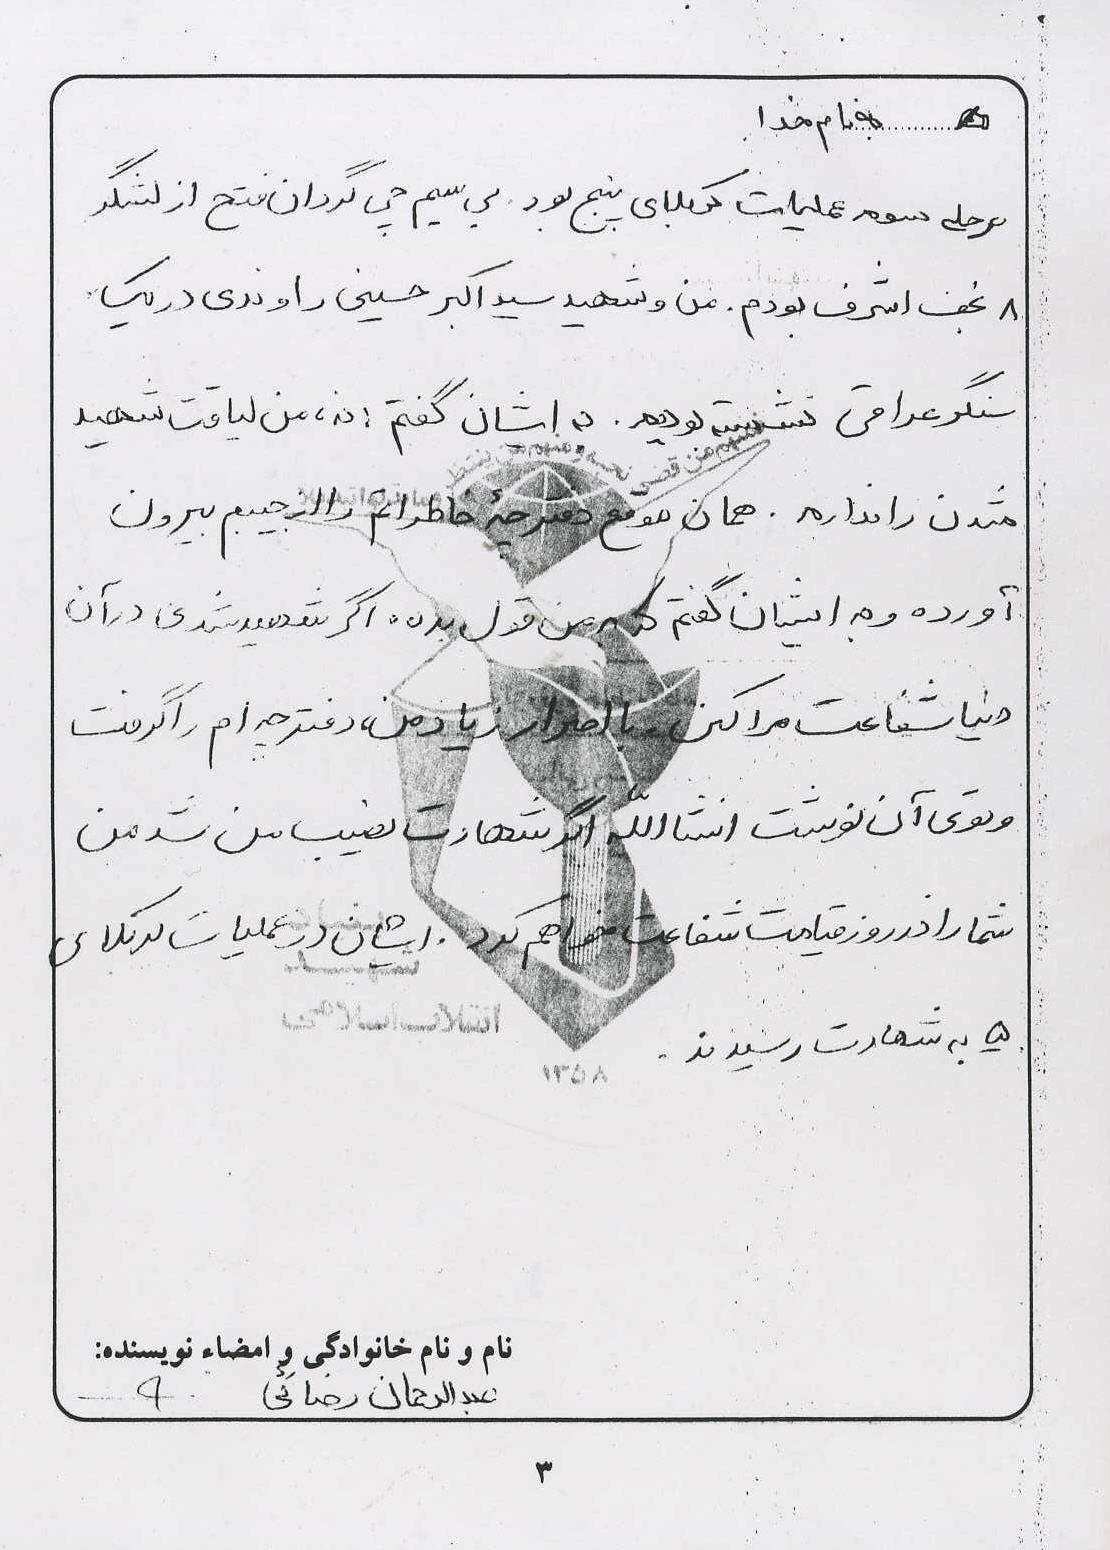 به نام خدا
مرحله سوم عملیات کربلای پنج بود. بی سیم چی گردان فتح از لشگر
۸ نجف اشرف بودم. من و شهید سید اکبر حسینی راوندی در یک
سنگر عراقی نشسته بودیم. به اشان گفتم: نه، من لیاقت شهید
شدن را ندارم. همان موقع دفترچهٔ خاطراتم را از جیبم بیرون
آورده و به ایشان گفتم که به من قول بده، اگر شهید شدی در آن
دنیا شفاعت مرا کنی. با اصرار زیاد من، دفترچه ام را گرفت
و توی آن نوشت انشاالله اگر شهادت نصیب من شد من
شما را در روز قیامت شفاعت خواهم کرد. ایشان در عملیات کربلای
۵ به شهادت رسیدند.
بنیاد
شهید
انقلاب اسلامی
۱۳۵۸
نام و نام خانوادگی و امضاء نویسنده:
عبدالرحمان رضائی
۳